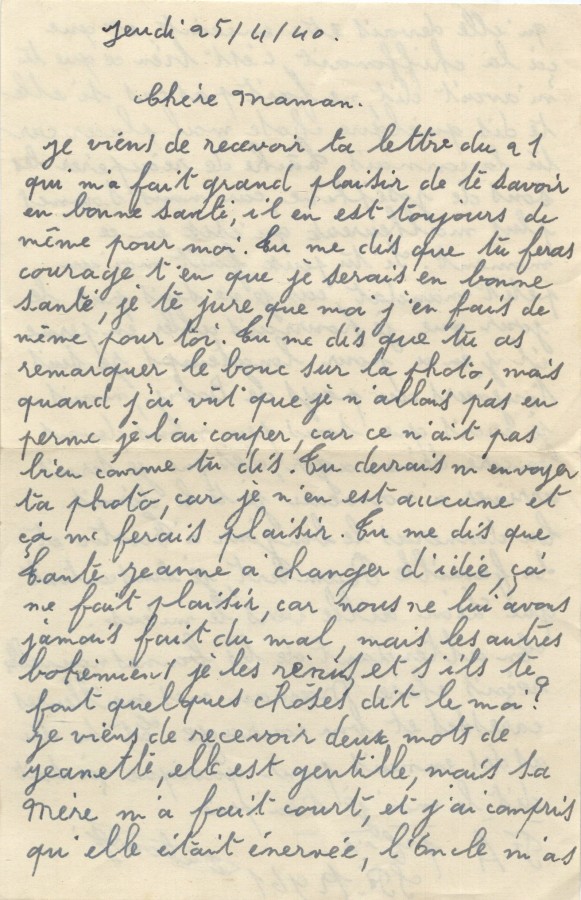 Jeudi 25/4/40.
Chère Maman.
je viens de recevoir ta lettre du 21
qui m'a fait grand plaisir de té savoir
en bonne santé, il en est toujours de
même pour moi. Tu me dis que tu feras
courage t'en que jé serais en bonne
santé, jé té jure que moi j'en fais de
même pour toi. Tu me dis que tu as
remarquer le bouc sur la photo, mais
quand j'ai vût que jé n'allais pas en
perme jé l'ai couper, car ce n'ait pas
bien comme tu dis. Tu devrais m'envoyer
ta photo, car jé n'en est aucune et
çà me ferais plaisir. Tu me dis que
Tante jeanne a changer d'idée, çà
me fait plaisir, car nous ne lui avons
jamais fait du mal, mais les autres
bohémiens jé les et s'ils té
font quelques chôses dit le moi?
je viens de recevoir deux mots de
jeanette, elle est gentille, mais sa
Mère m'a fait court, et j'ai compris
qu'elle était énervée, l'Oncle m'as